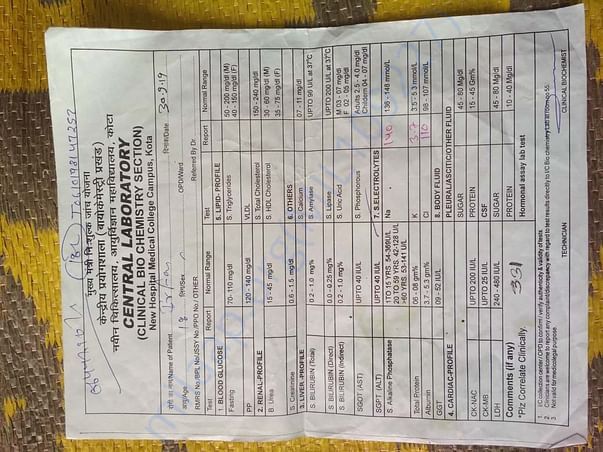 मुख्य मंत्री निःशुल्क जांच योजना
केन्द्रीय प्रयोगशाला (बायोकेमेस्ट्री प्रखंड)
नवीन चिकित्सालय, आयुर्विज्ञान महाविद्यालय, कोटा
CENTRAL LABORATORY
(CLINICAL BIO CHEMISTRY SECTION)
New Hospital Medical College Campus, Kota
रोगी का नाम/Name of Patient
दिनांक/Date 30-9-19
आयु/Age 18 लिंग/Sex OPD/Ward
RMRS No./BPL No./JSSY No./PPO No./ OTHER Referred By Dr
Test Report Normal Range Test Report Normal Range
1. BLOOD GLUCOSE 5. LIPID- PROFILE
Fasting 70-110 mg/dl S. Triglycerides 50-200 mg/dl (M)
40-150 mg/dl (F)
PP 120-140 mg/dl VLDL
2. RENAL-PROFILE S. Total Cholesterol 150-240 mg/dl
B. Urea 15-45 mg/dl S. HDL Cholesterol 30-60 mg/dl (M)
35-75 mg/dl (F)
S. Creatinine 0.6-1.5 mg/dl 6. OTHERS
3. LIVER-PROFILE S. Calcium 07-11 mg/dl
S. BILIRUBIN (Total) 0.2-1.0 mg% S. Amylase UPTO 96 U/L at 37°C
S. BILIRUBIN (Direct) 0.0-0.25 mg% S. Lipase UPTO 200 U/L at 37°C
S. BILIRUBIN (Indirect) 0.2-1.0 mg% S. Uric Acid M 03-07 mg/dl
F 02-05 mg/dl
SGOT (AST) UPTO 40 IU/L S. Phosphorous Adults 2.5-4.0 mg/dl
Childern 04-07 mg/dl
SGPT (ALT) UPTO 40 IU/L 7. S.ELECTROLYTES
S. Alkaline Phosphatase 1TO 15 YRS. 54-369IU/L Na 140 136-148 mmol/L
20 TO 59 YRS. 42-128 U/L
>60 YRS. 53-141 U/L
Total Protein 06-08 gm% K 3.7 3.5-5.3 mmol/L
Albumin 3.7-5.3 gm% Cl 110 98-107 mmol/L
GGT 09-52 IU/L 8. BODY FLUID
4. CARDIAC-PROFILE PLEURAL/ASCITIC/OTHER FLUID
SUGAR 45-80 Mg/dl
CK-NAC UPTO 200 IU/L PROTEIN 15-45 Gm%
CK-MB UPTO 25 IU/L CSF
LDH 240-480 IU/L SUGAR 45-80 Mg/dl
PROTEIN 10-40 Mg/dl
Comments (if any) 331 Hormonal assay lab test
*Plz Correlate Clinically.
TECHNICIAN CLINICAL BIOCHEMIST